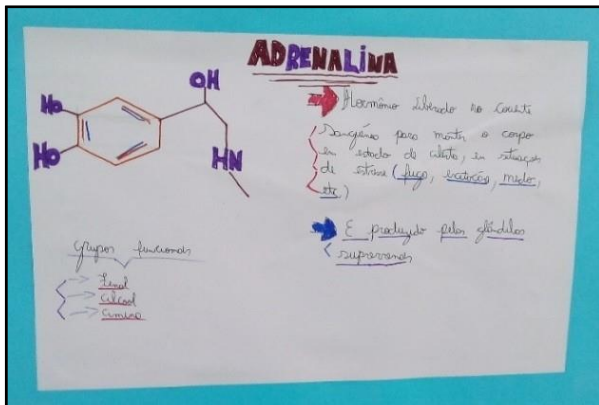 ADRENALINA
OH
Ho
HO
HN
Hormônio liberado no
para manter o corpo
em estado de alerta, em
de estresse (fuga, medo,
etc.)
É produzido pelas glândulas
suprarrenais
Grupos funcionais
Fenol
álcool
amina